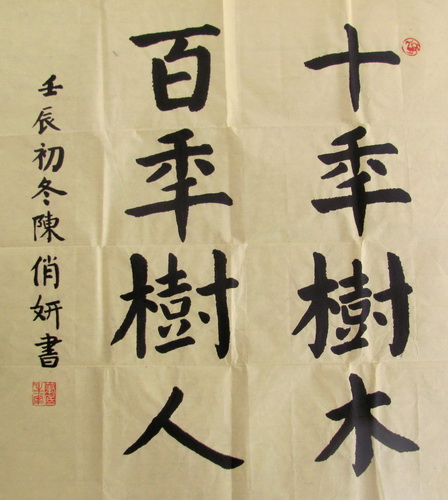 十年樹木
百年樹人
壬辰初冬陳俏妍書